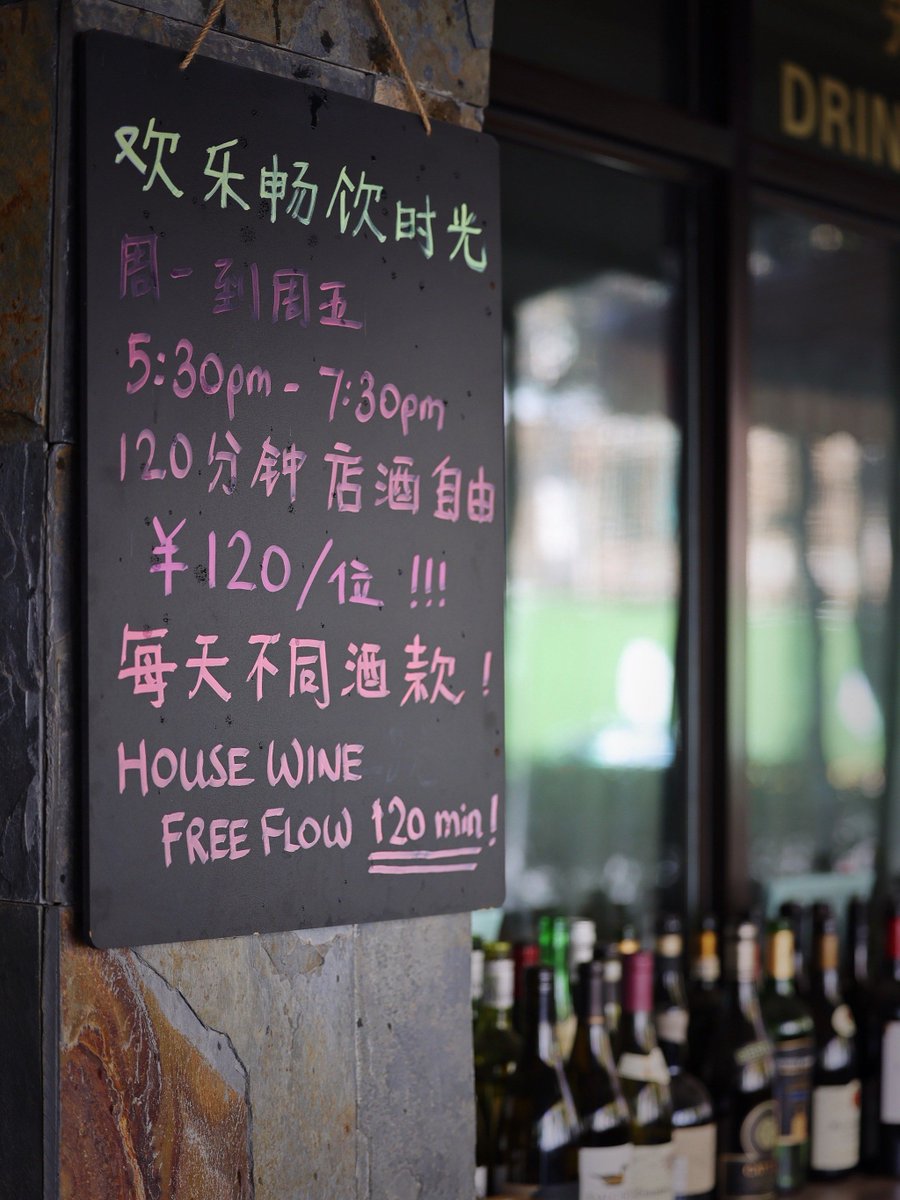 欢乐畅饮时光
周一到周五
5:30pm - 7:30pm
120分钟 店酒自由
¥120/位 !!!
每天不同酒款!
HOUSE WINE
FREE FLOW 120 min!
DRIN